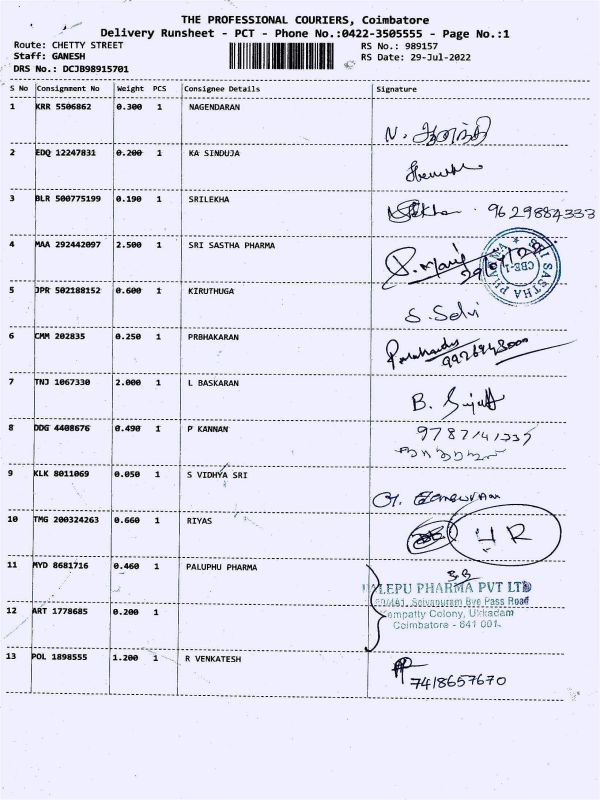 THE PROFESSIONAL COURIERS, Coimbatore
Delivery Runsheet - PCT - Phone No.:0422-3505555 - Page No.:1
Route: CHETTY STREET RS No.: 989157
Staff: GANESH RS Date: 29-Jul-2022
DRS No.: DCJB98915701
S No Consignment No Weight PCS Consignee Details Signature
1 KRR 5506862 0.300 1 NAGENDARAN
N.
2 EDQ 12247831 0.200 1 KA SINDUJA
3 BLR 500775199 0.190 1 SRILEKHA
9629884333
4 MAA 292442097 2.500 1 SRI SASTHA PHARMA
SRI SASTHA PHARMA
CBE-1
5 JPR 502188152 0.600 1 KIRUTHUGA
S. Selvi
6 CMM 202835 0.250 1 PRBHAKARAN
7 TNJ 1067330 2.000 1 L BASKARAN
B.
8 DDG 4408676 0.490 1 P KANNAN
9 KLK 8011069 0.050 1 S VIDHYA SRI
10 TMG 200324263 0.660 1 RIYAS
HR
11 MYD 8681716 0.460 1 PALUPHU PHARMA
PHARMA PVT LTD
Bye Pass Road
12 ART 1778685 0.200 1
Colony, Ukkadam
Coimbatore - 641 001.
13 POL 1898555 1.200 1 R VENKATESH
7418657670